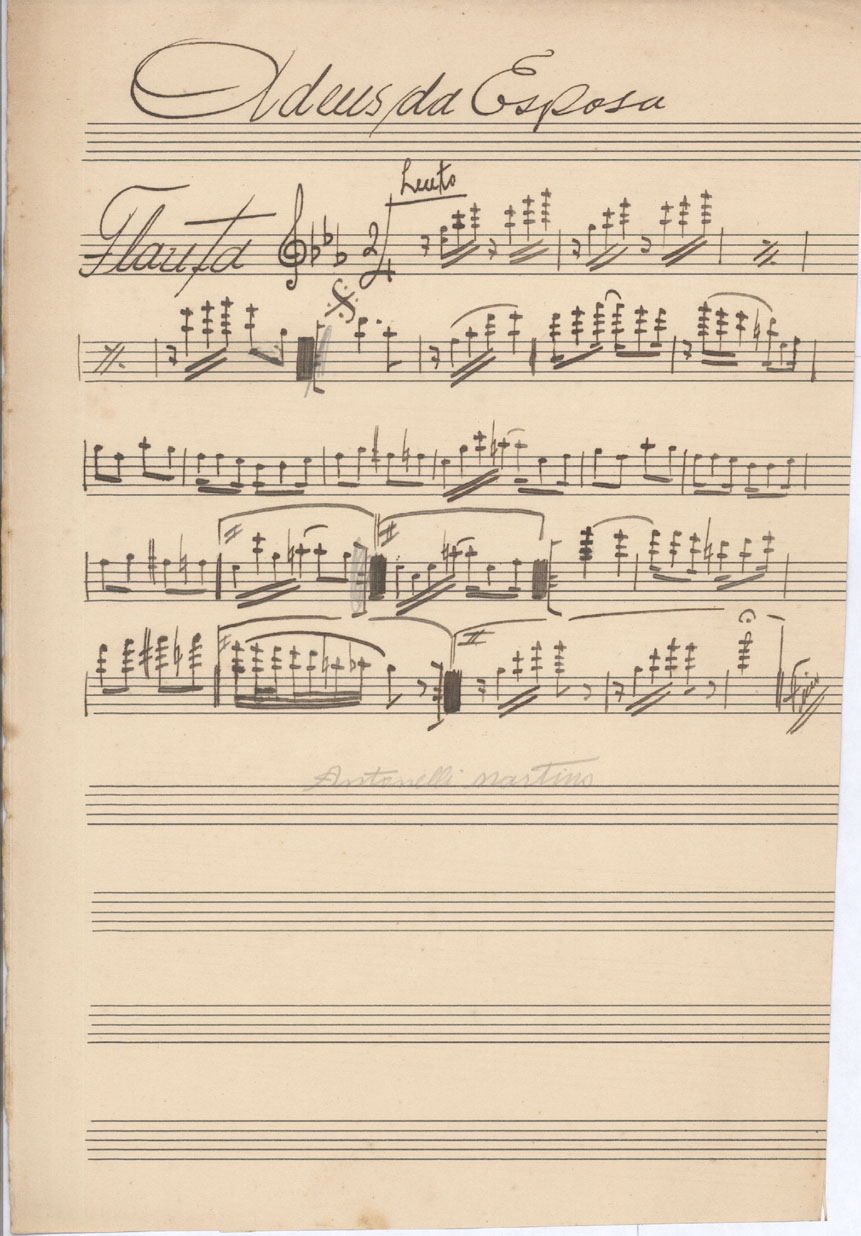 Adeus da Esposa
Lento
Flauta 2 4
Fim
Antonelli Martins